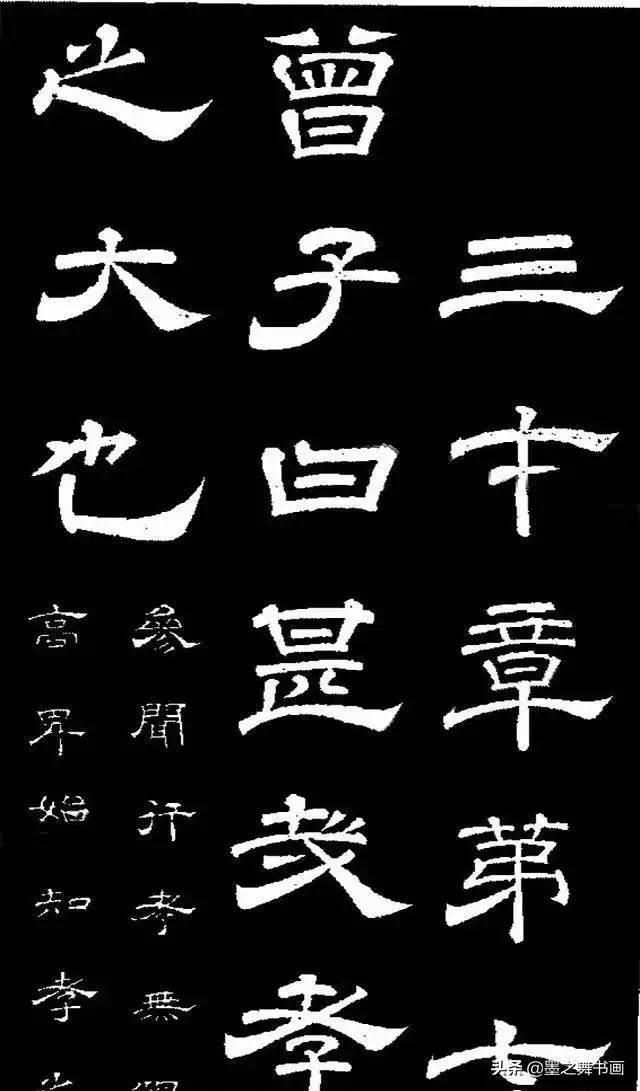 三才章第七
曾子曰甚哉孝
之大也
參聞行孝無
高卑始知孝
头条 @墨之舞书画